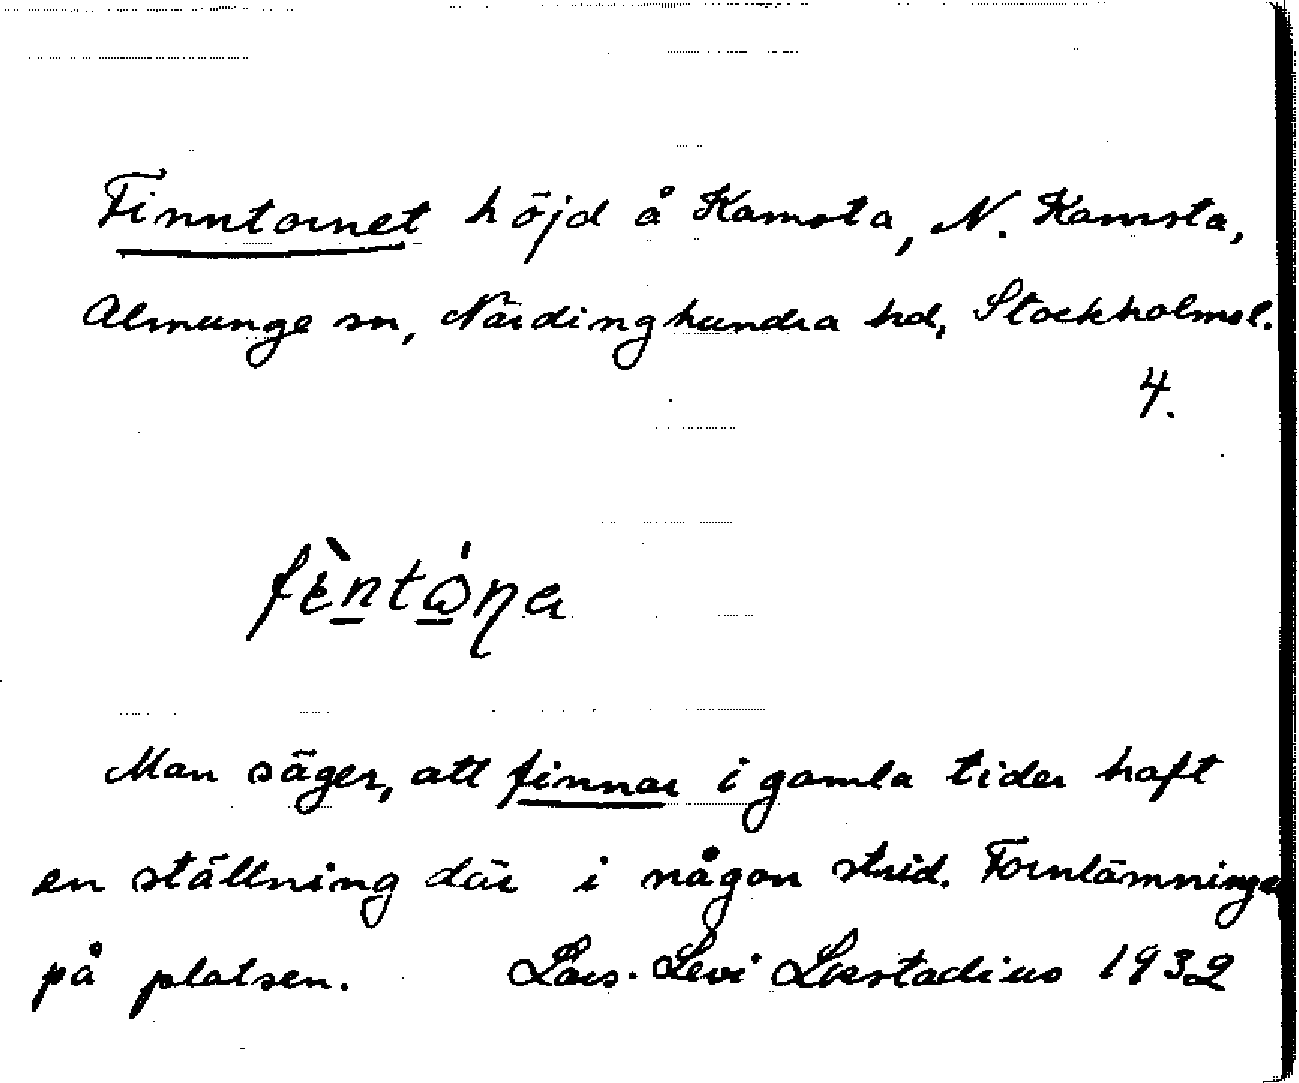 Finntornet höjd å Kamsta, N. Kamsta,
Almunge sn, Närdinghundra hd, Stockholmsl.
4.
Man säger, att finnar i gamla tider haft
en ställning där i någon strid. Fornlämningar
på platsen. Lars-Levi Læstadius 1932